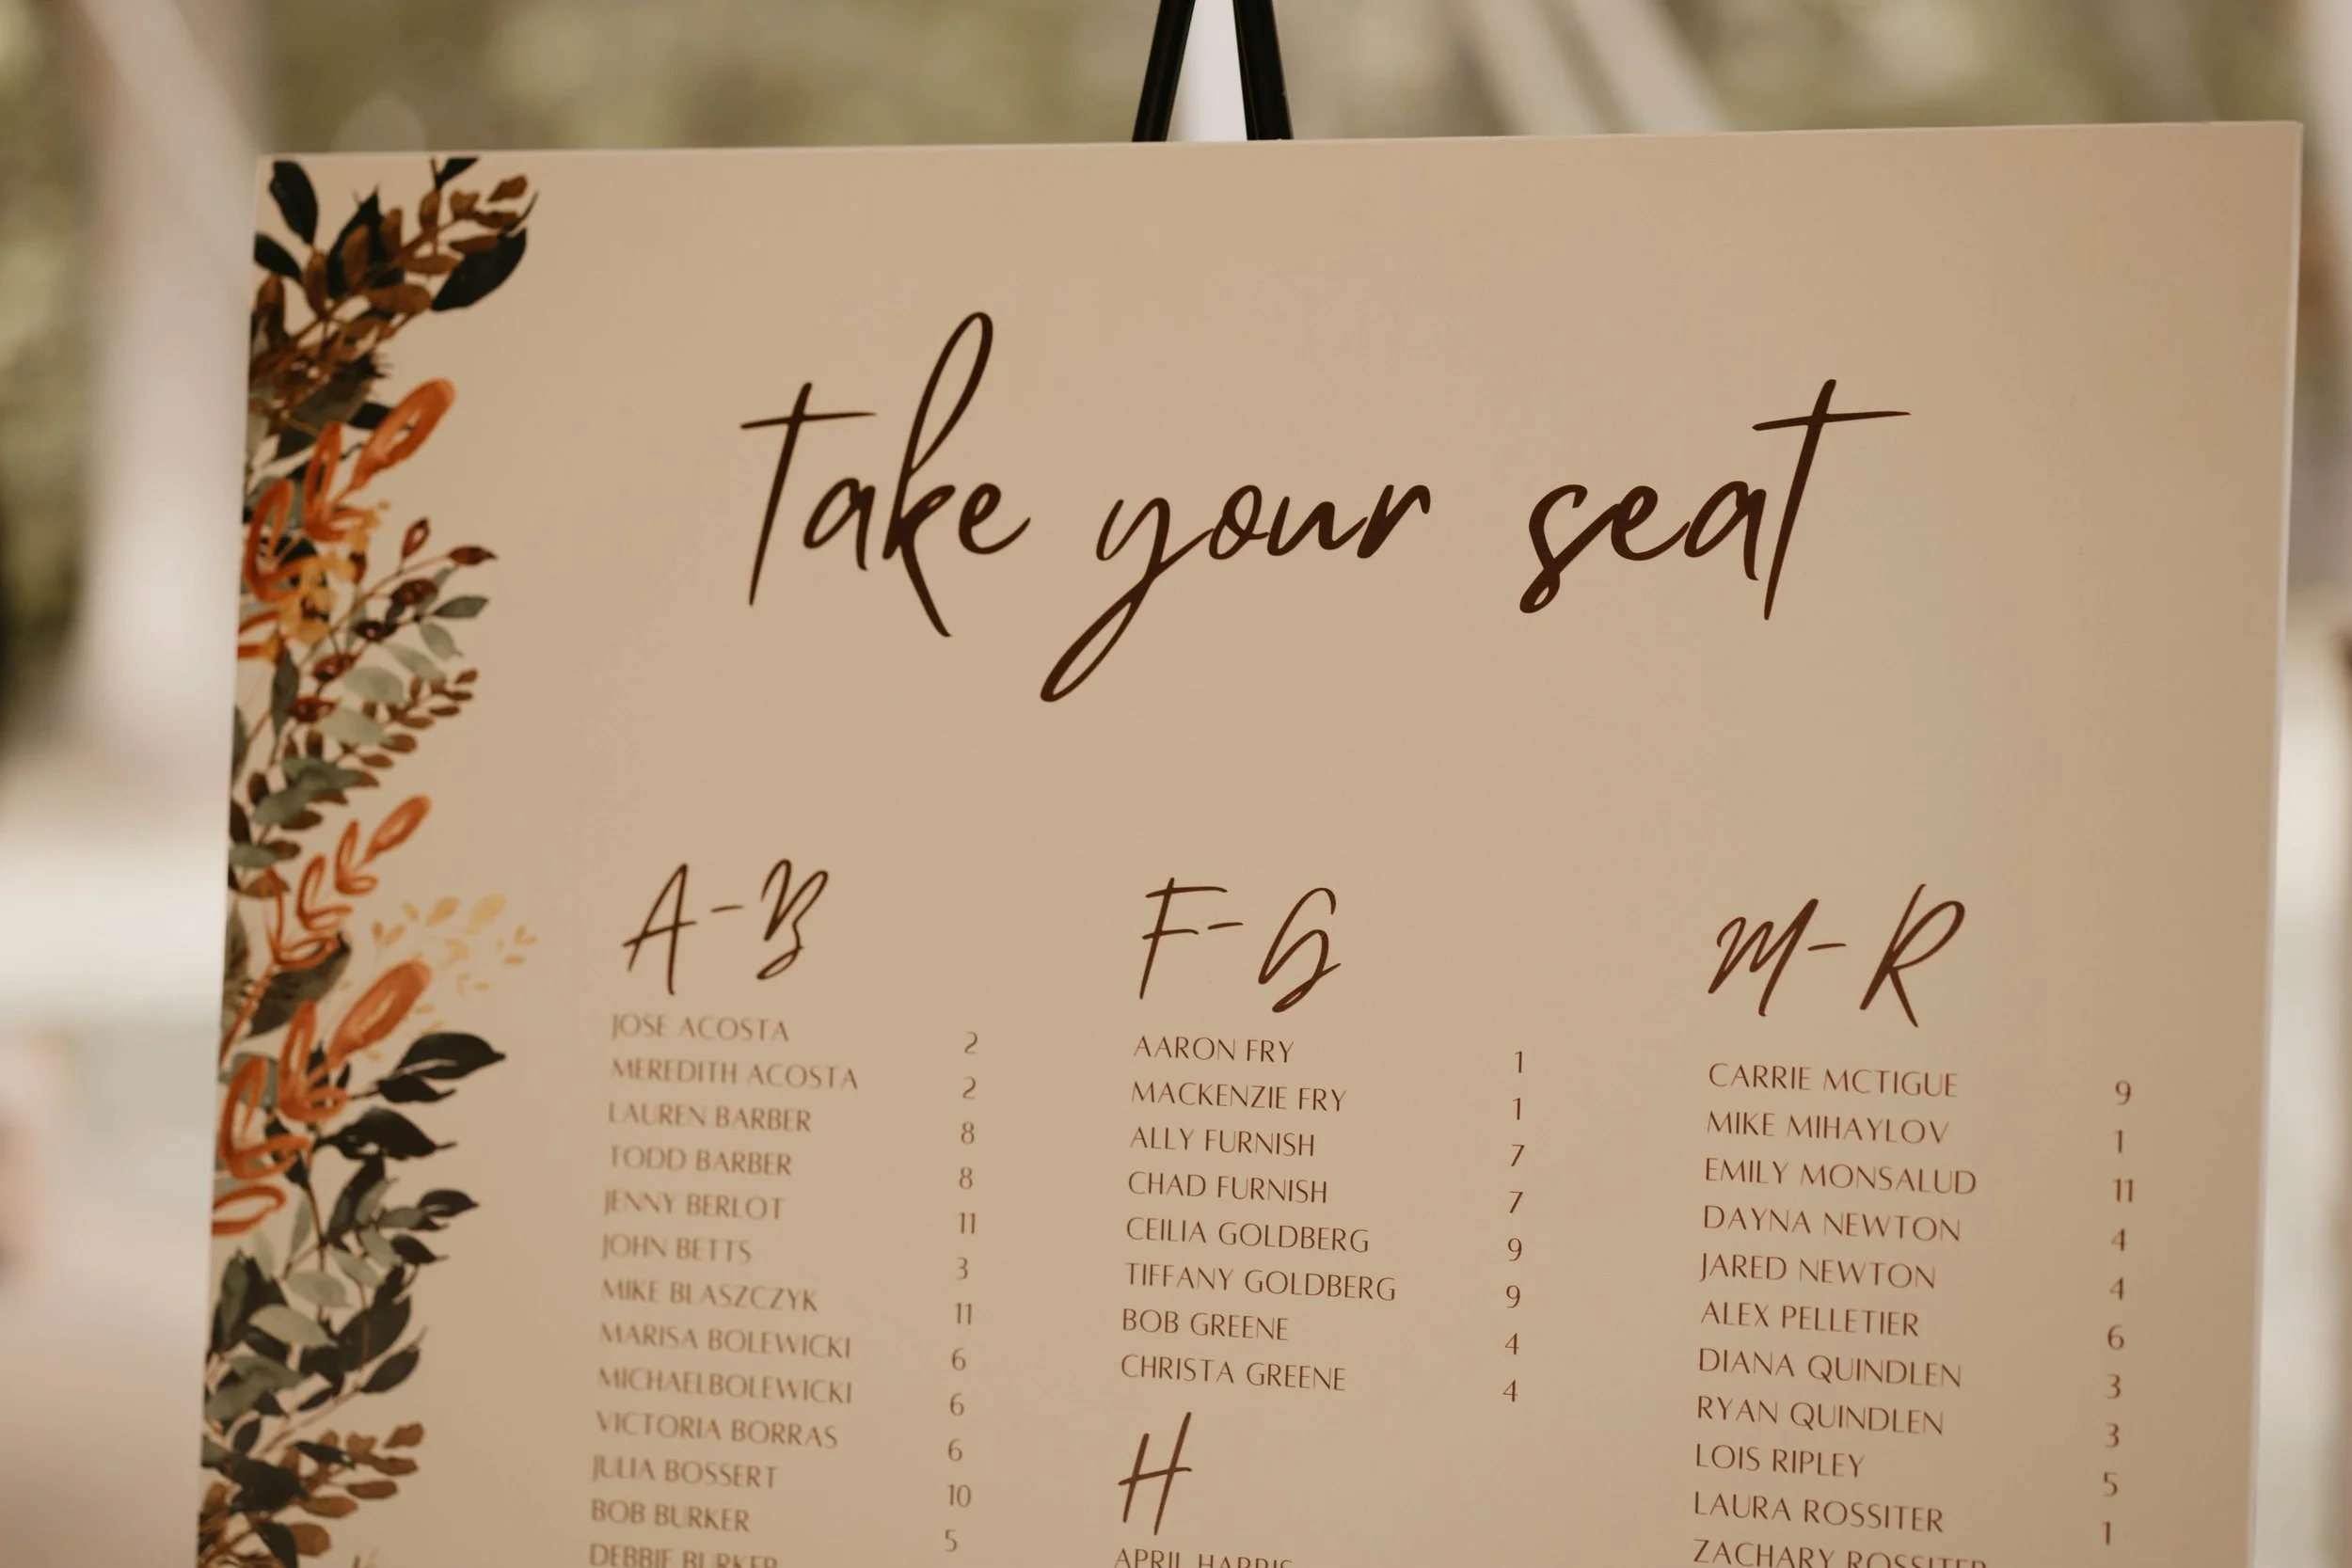 take your seat
A-B
JOSE ACOSTA 2
MEREDITH ACOSTA 2
LAUREN BARBER 8
TODD BARBER 8
JENNY BERLOT 11
JOHN BETTS 3
MIKE BLASZCZYK 11
MARISA BOLEWICKI 6
MICHAELBOLEWICKI 6
VICTORIA BORRAS 6
JULIA BOSSERT 10
BOB BURKER 5
DEBBIE BURKER
F-G
AARON FRY 1
MACKENZIE FRY 1
ALLY FURNISH 7
CHAD FURNISH 7
CEILIA GOLDBERG 9
TIFFANY GOLDBERG 9
BOB GREENE 4
CHRISTA GREENE 4
H
APRIL HARRIS
M-R
CARRIE MCTIGUE 9
MIKE MIHAYLOV 1
EMILY MONSALUD 11
DAYNA NEWTON 4
JARED NEWTON 4
ALEX PELLETIER 6
DIANA QUINDLEN 3
RYAN QUINDLEN 3
LOIS RIPLEY 5
LAURA ROSSITER 1
ZACHARY ROSSITER